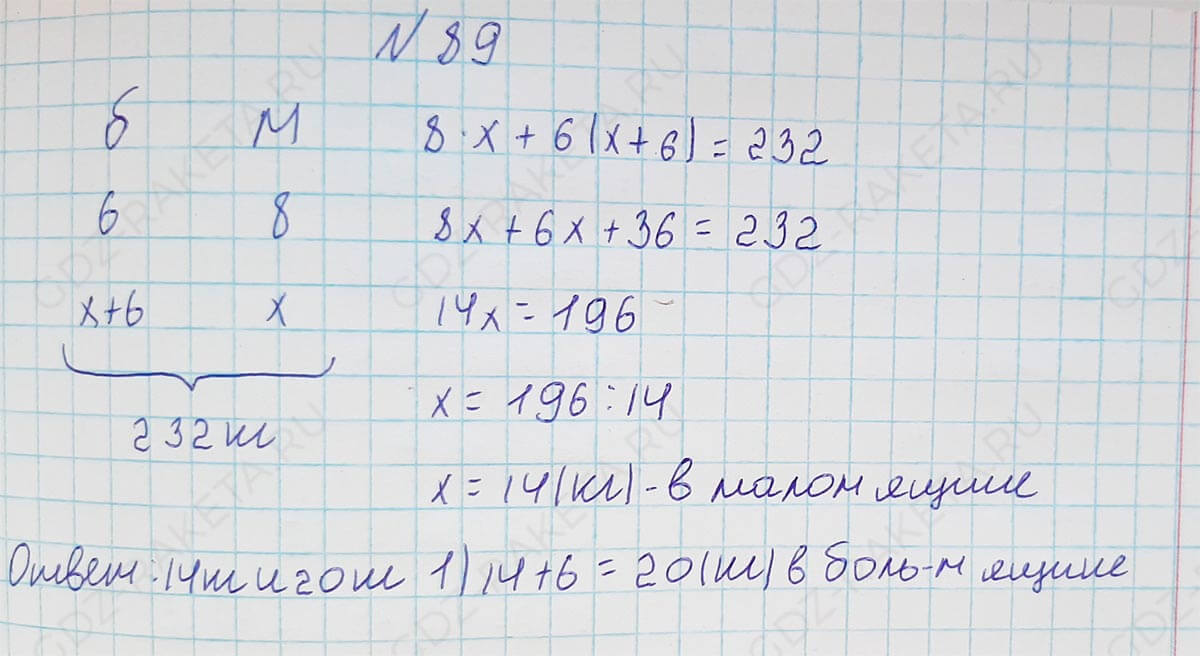 N 89
б М 8·x + 6(x+6) = 232
6 8 8x + 6x + 36 = 232
x+6 x 14x = 196
232 кг x = 196 : 14
x = 14(кг) - в малом ящике
Ответ: 14кг и 20 кг 1) 14+6 = 20(кг) в боль-м ящике
GDZ-RAKETA.RU